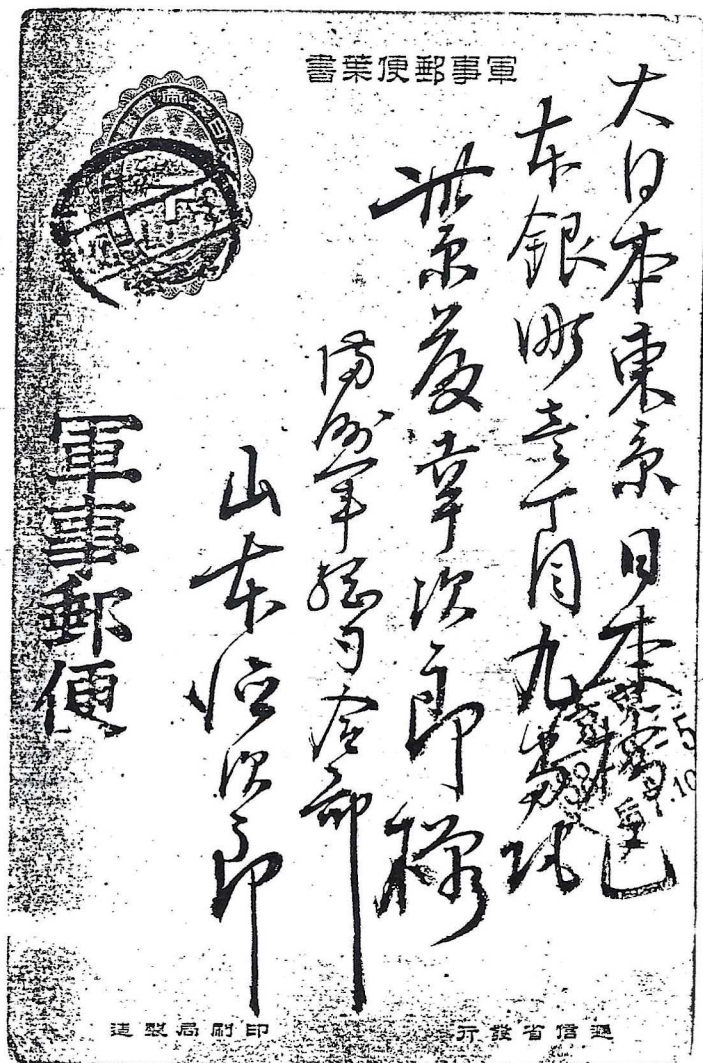 軍事郵便葉書
大日本東京日本橋區
本銀町壱丁目九番地
齋藤幸次郎様
満州軍総司令部
山本 次郎
軍事郵便
逓信省發行
印刷局製造